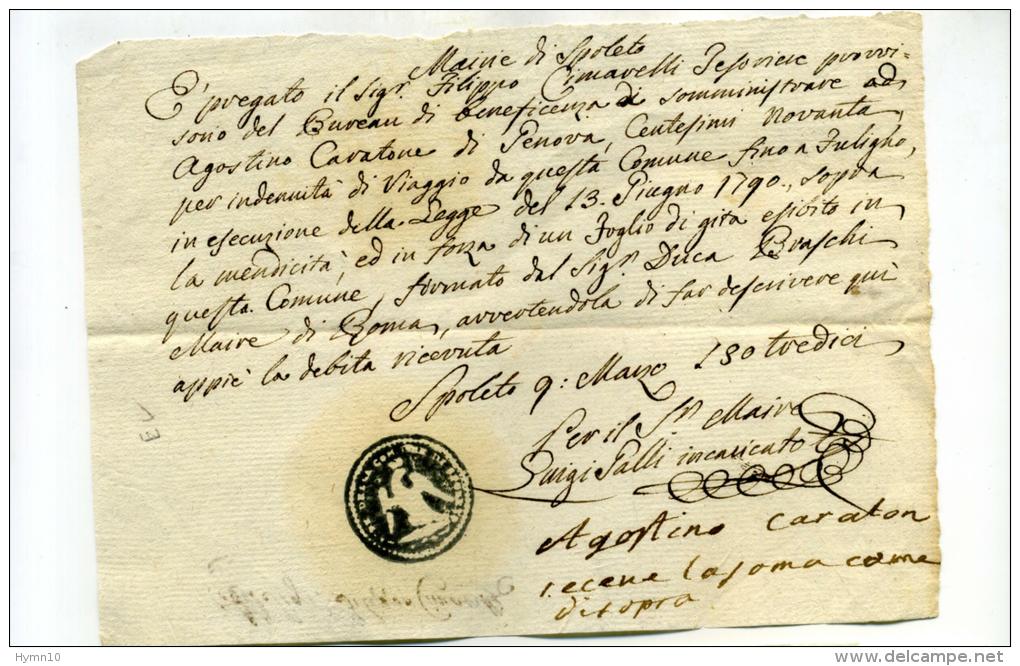 Mairie di Spoleto
E' pregato il Sigr. Filippo Cimarelli Tesoriere provvi-
sorio del Bureau di beneficenza di somministrare ad
Agostino Caratone di Genova, Centesimi Novanta,
per indennità di Viaggio da questa Comune fino a Fuligno,
in esecuzione della Legge del 13. Giugno 1790., sopra
la mendicità, ed in forza di un Foglio di gita esibito in
questa Comune, firmato dal Sigr. Duca Braschi
Maire di Roma, avvertendola di far descrivere qui
appiè la debita ricevuta
Spoleto 9: Marzo 180tredici
Per il Sr. Maire
Luigi Palli incaricato
Agostino Caraton
recene la soma come
di sopra
EV
Hymn10
www.delcampe.net